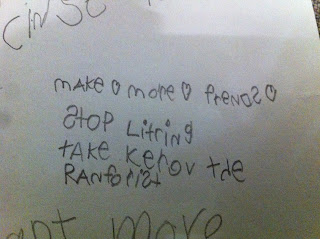 make more frends
Stop Litring
tAke Kerov tde
RAnforist
move